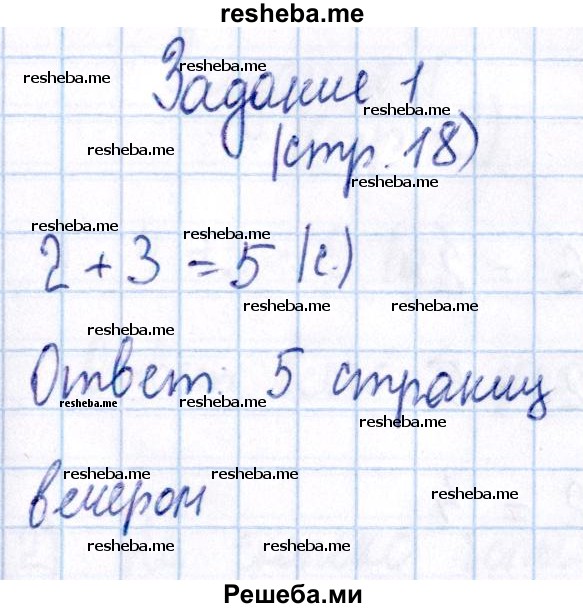 resheba.me
resheba.me resheba.me
Задание 1
resheba.me
resheba.me
(стр. 18)
resheba.me
resheba.me
resheba.me
2 + 3 = 5 (с.)
resheba.me resheba.me
resheba.me
Ответ: 5 страниц
resheba.me resheba.me resheba.me
resheba.me
resheba.me resheba.me
resheba.me
вечером
resheba.me resheba.me
Решеба.ми